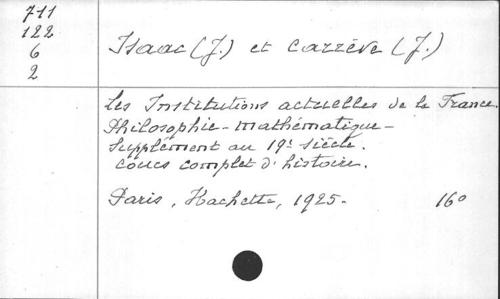 711
122
6
2
Isaac (J.) et Carrève (J.)
Les Institutions actuelles de la France.
Philosophie - mathématique -
Supplément au 19e siècle.
Cours complet d'histoire.
Paris, Hachette, 1925. 16°